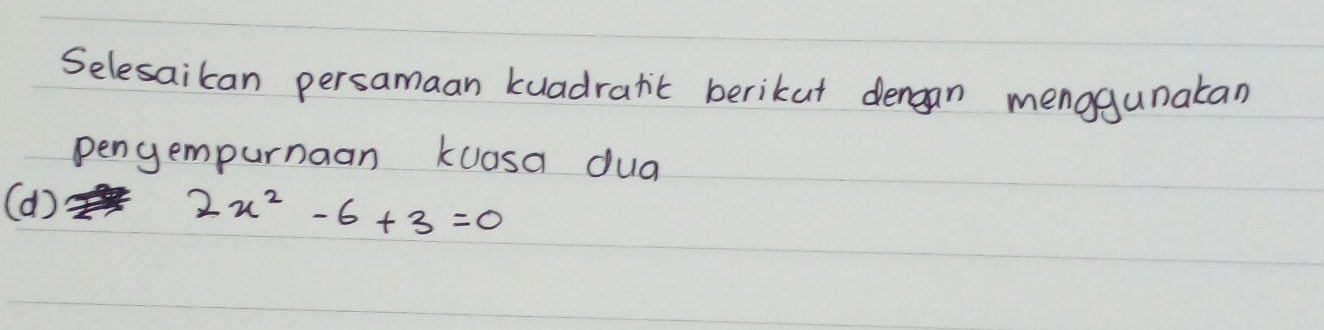 Selesaikan persamaan kuadratik berikut dengan menggunakan
penyempurnaan kuasa dua
(d) 2x² - 6 + 3 = 0